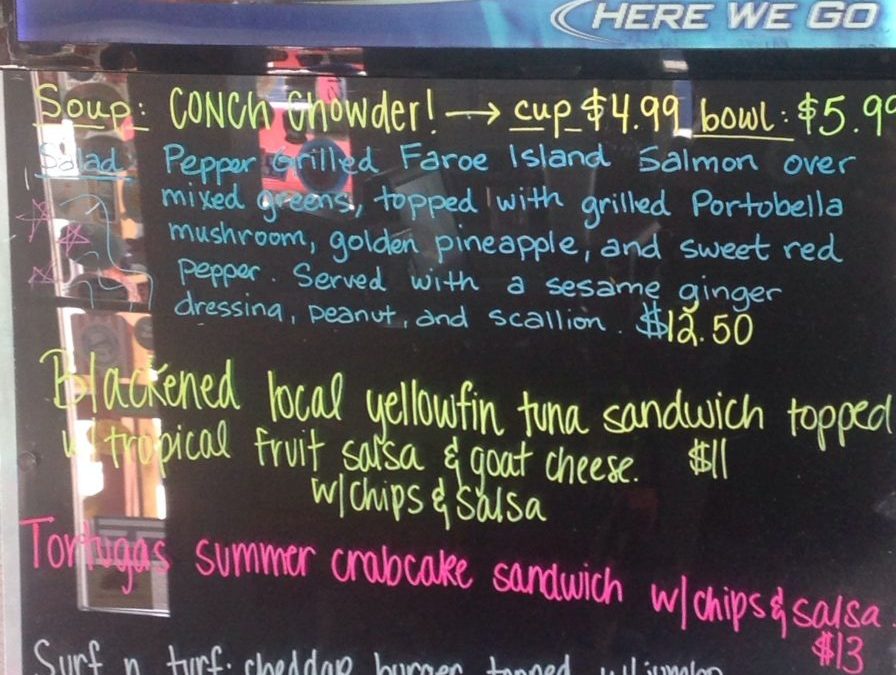 HERE WE GO
Soup: CONCH Chowder! → cup $4.99 bowl: $5.99
Salad Pepper Grilled Faroe Island Salmon over
mixed greens, topped with grilled Portobella
mushroom, golden pineapple, and sweet red
pepper. Served with a sesame ginger
dressing, peanut, and scallion. $12.50
Blackened local yellowfin tuna sandwich topped
w/ tropical fruit salsa & goat cheese. $11
w/chips & salsa
Tortugas summer crabcake sandwich w/chips & salsa.
$13
Surf n turf: cheddar burger topped w/jumbo